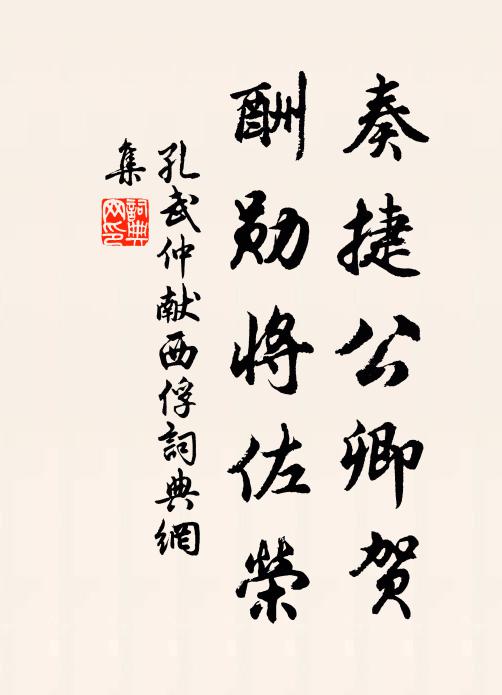 奏捷公卿贺
酬勋将佐荣
孔武仲献西俘詞典網
集
詞典
网印